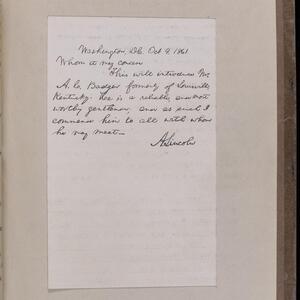 Washington, D.C. Oct 9, 1861
Whom it may concern
This will introduce Mr.
A. C. Badger formerly of Louisville
Kentucky. He is a reliable and
worthy gentleman, and as such I
commend him to all with whom
he may meet—
A. Lincoln